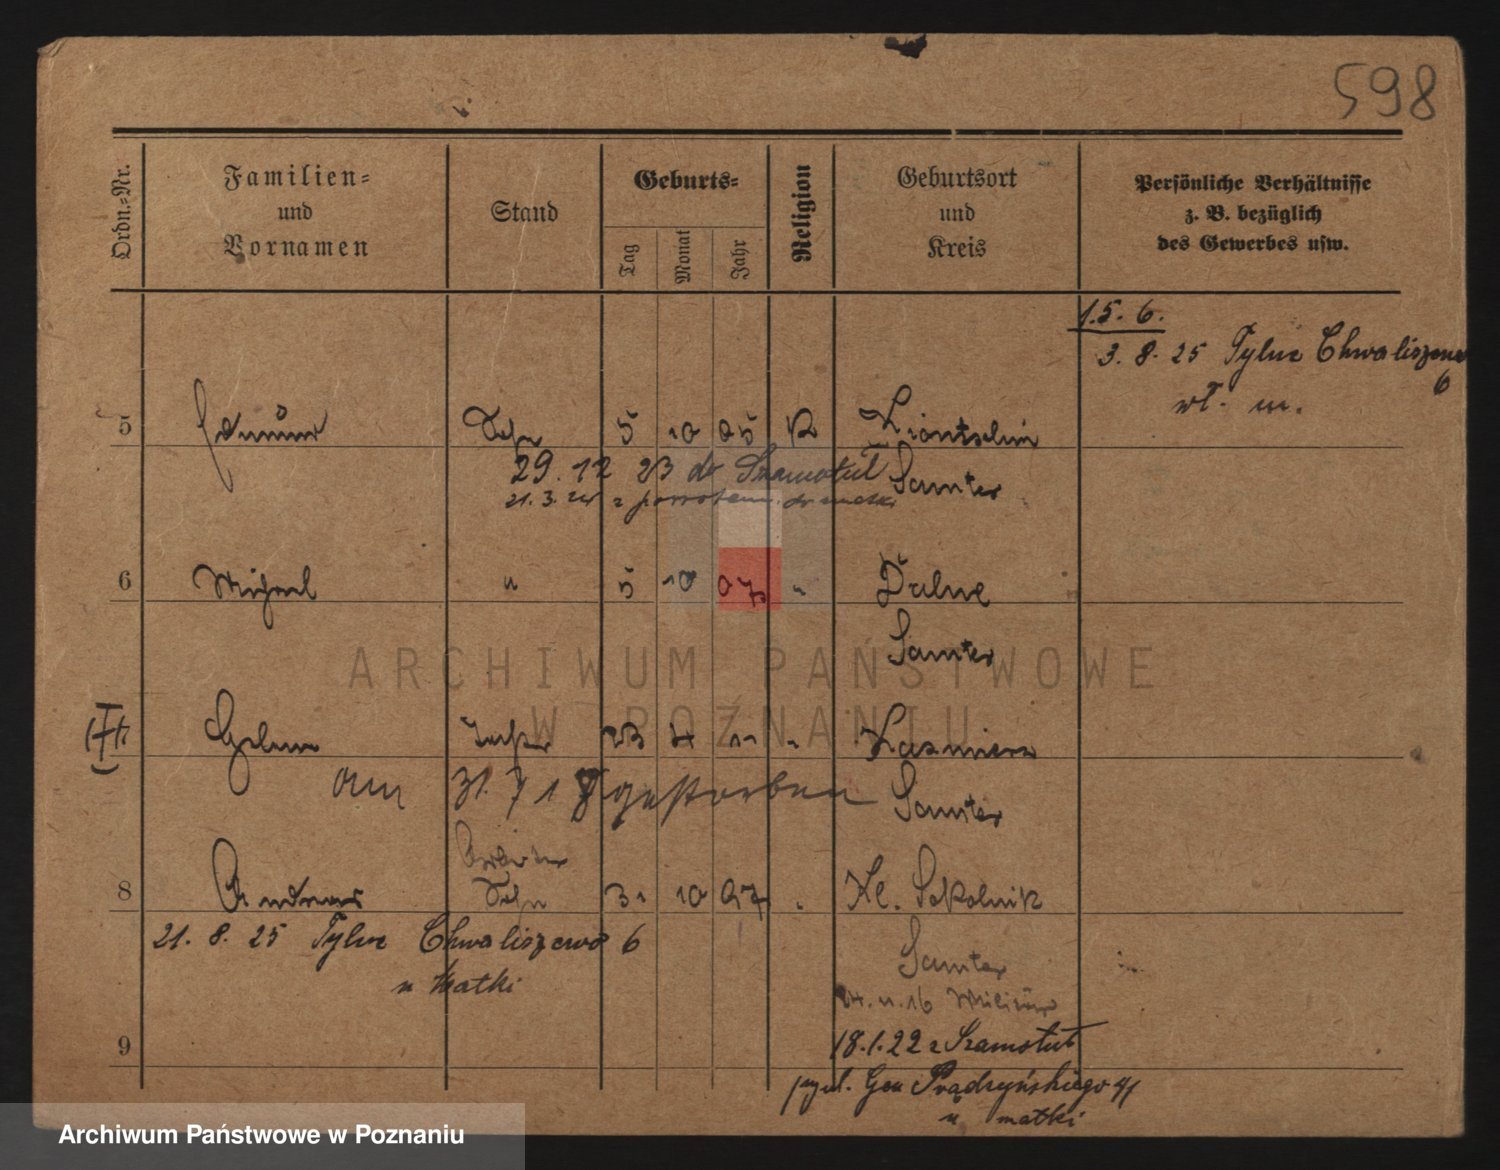 598
Ordn.-Nr.
Familien-
und
Vornamen
Stand
Geburts-
Tag
Monat
Jahr
Religion
Geburtsort
und
Kreis
Persönliche Verhältnisse
z. B. bezüglich
des Gewerbes usw.
1.5. 6.
3. 8. 25 Tylne Chwaliszewo
6
wł. m.
5 Sohn 5 10 05
29. 12 23 do Szamotuł Samter
21. 3. 24 z powrotem do matki
6 Michael " 5 10 07 "
Samter
ARCHIWUM PAŃSTWOWE
W POZNANIU
7 Helene Tochter 23 4 11 " Kazmierz
am 31. 7 18 gestorben Samter
Arbeiter
8 Andreas Sohn 31 10 97 " Kl. Sokolnik
21. 8. 25 Tylne Chwaliszewo 6
u Matki
Samter
16 Militär
9
18.1.22 z Szamotuł
Gen Prądzyńskiego 41
u matki
Archiwum Państwowe w Poznaniu